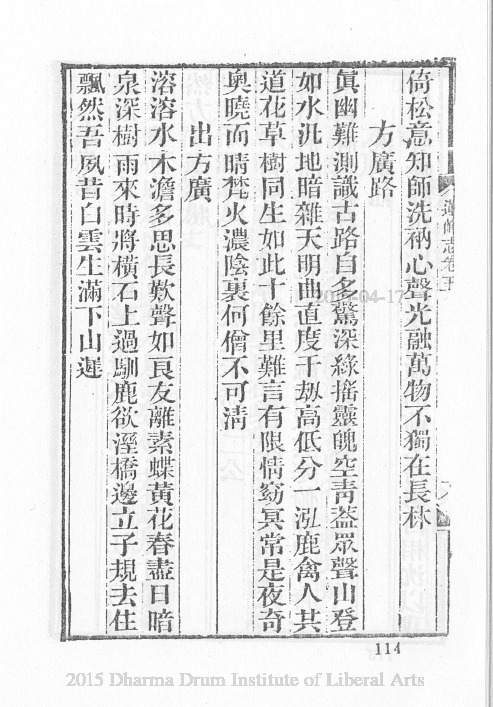 倚松意知師洗衲心聲光融萬物不獨在長林
方廣路
眞幽難測識古路自多驚深綠搖靈魄空靑葢眾聲山登
如水汎地暗雜天明曲直度千刼高低分一泓鹿禽人共
道花草樹同生如此十餘里難言有限情窈冥常是夜奇
奧曉而晴梵火濃陰裏何僧不可淸
出方廣
溶溶水木澹多思長歎聲如良友離素蝶黃花春盡日暗
泉深樹雨來時將橫石上過馴鹿欲溼橋邊立子規去住
飄然吾夙昔白雲生滿下山遲
志卷五
114
2015 Dharma Drum Institute of Liberal Arts